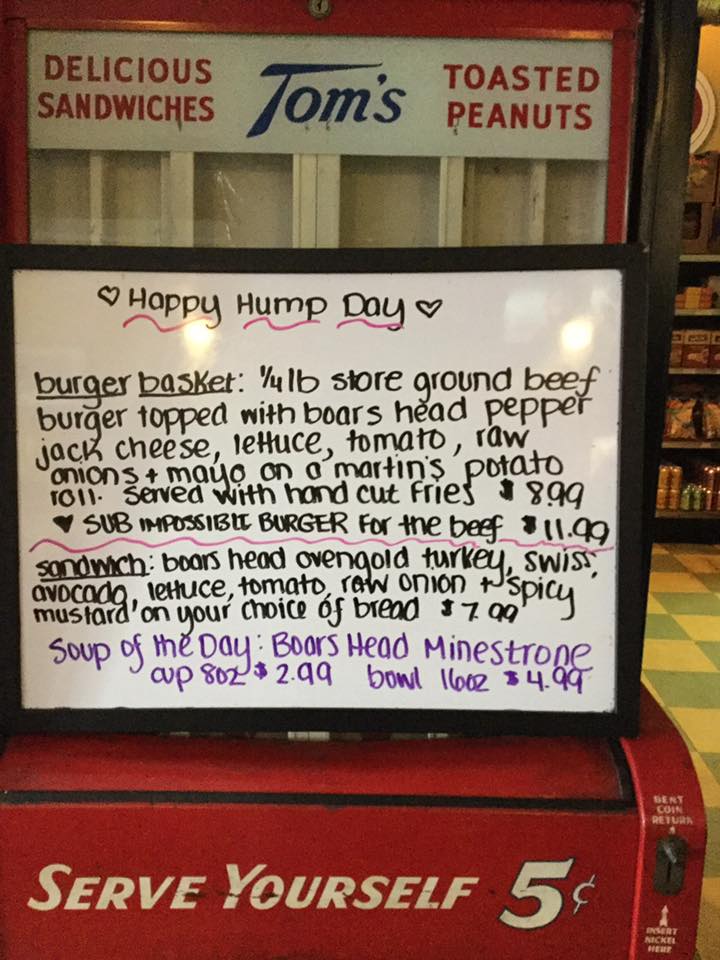 DELICIOUS SANDWICHES
Tom's
TOASTED PEANUTS
♡ Happy Hump Day ♡
burger basket: 1/4 lb store ground beef
burger topped with boars head pepper
jack cheese, lettuce, tomato, raw
onions + mayo on a martin's potato
roll. served with hand cut fries $8.99
♥ SUB IMPOSSIBLE BURGER for the beef $11.99
sandwich: boars head ovengold turkey, swiss,
avocado, lettuce, tomato, raw onion + spicy
mustard on your choice of bread $7.99
Soup of the Day: Boars Head Minestrone
cup 8oz $2.99 bowl 16oz $4.99
BENT
COIN
RETURN
SERVE YOURSELF 5¢
INSERT
NICKEL
HERE